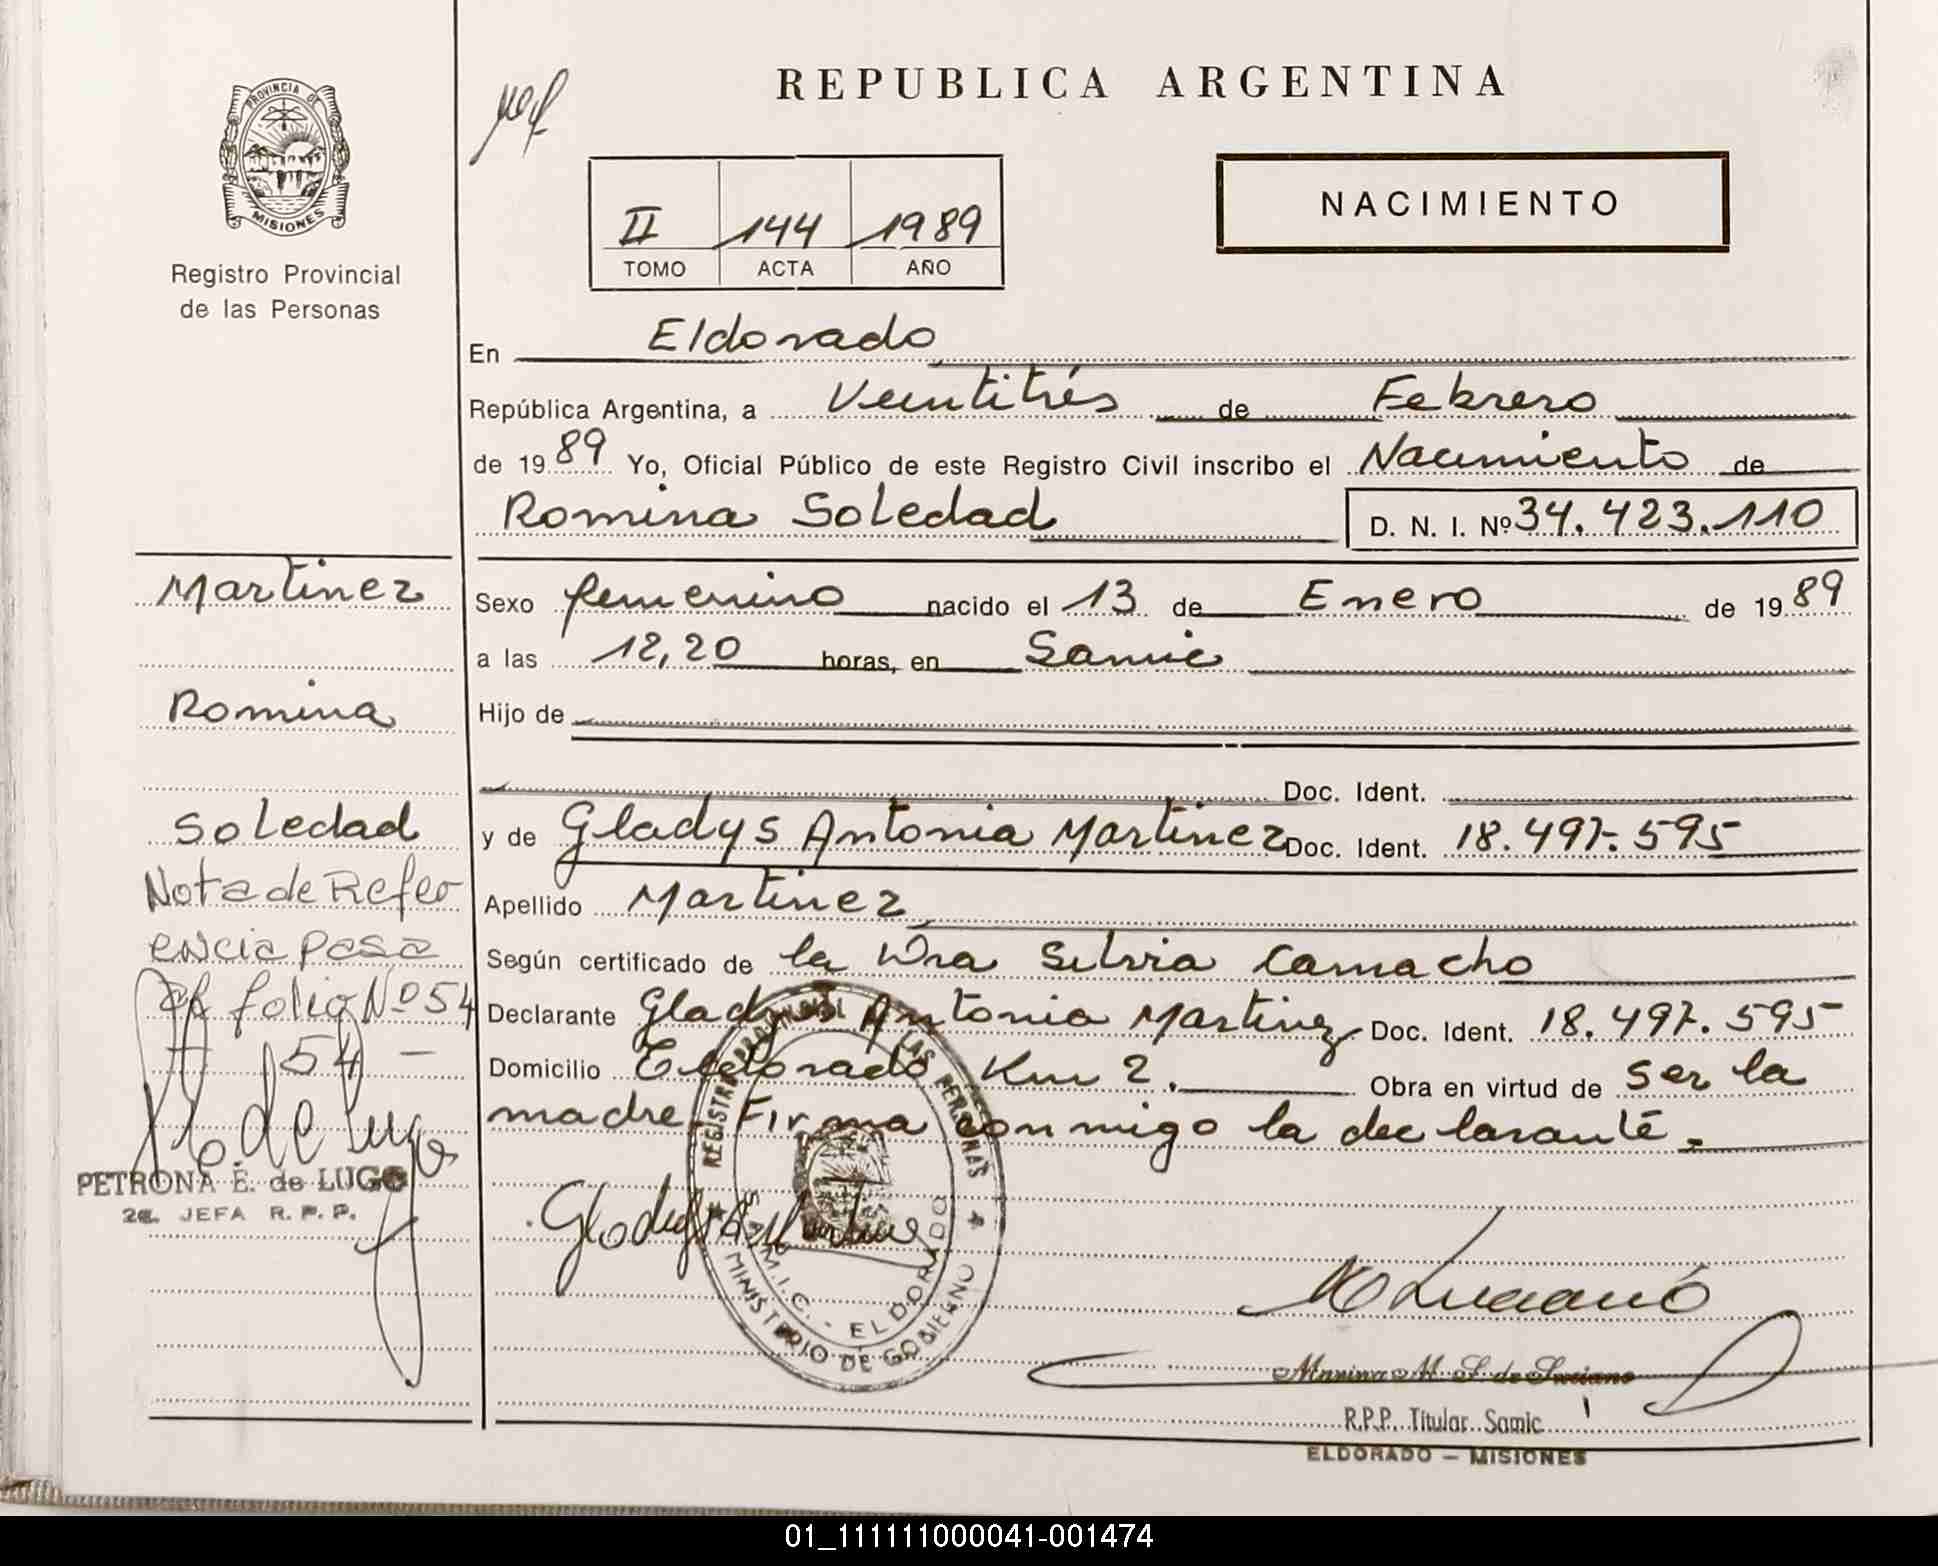 REPUBLICA ARGENTINA
PROVINCIA DE
MISIONES
Registro Provincial
de las Personas
NACIMIENTO
II 144 1989
TOMO ACTA AÑO
En Eldorado
República Argentina, a Veintitrés de Febrero
de 1989 Yo, Oficial Público de este Registro Civil inscribo el Nacimiento de
Romina Soledad D. N. I. Nº 34.423.110
Martinez
Romina
Soledad
Nota de Refer
encia pasa
al folio Nº 54
54 -
PETRONA E. de LUGO
2a. JEFA R. P. P.
Sexo femenino nacido el 13 de Enero de 1989
a las 12,20 horas, en Samic
Hijo de
Doc. Ident.
y de Gladys Antonia Martinez Doc. Ident. 18.497.595
Apellido Martinez
Según certificado de la Dra Silvia Camacho
Declarante Gladys Antonia Martinez Doc. Ident. 18.497.595
Domicilio Eldorado Km 2. Obra en virtud de ser la
madre. Firma conmigo la declarante.
REGISTRO PROVINCIAL LAS PERSONAS
S.A.M.I.C. - ELDORADO
MINISTERIO DE GOBIERNO
Marina M. S. de Luciano
R.P.P. Titular Samic
ELDORADO - MISIONES
01_111111000041-001474